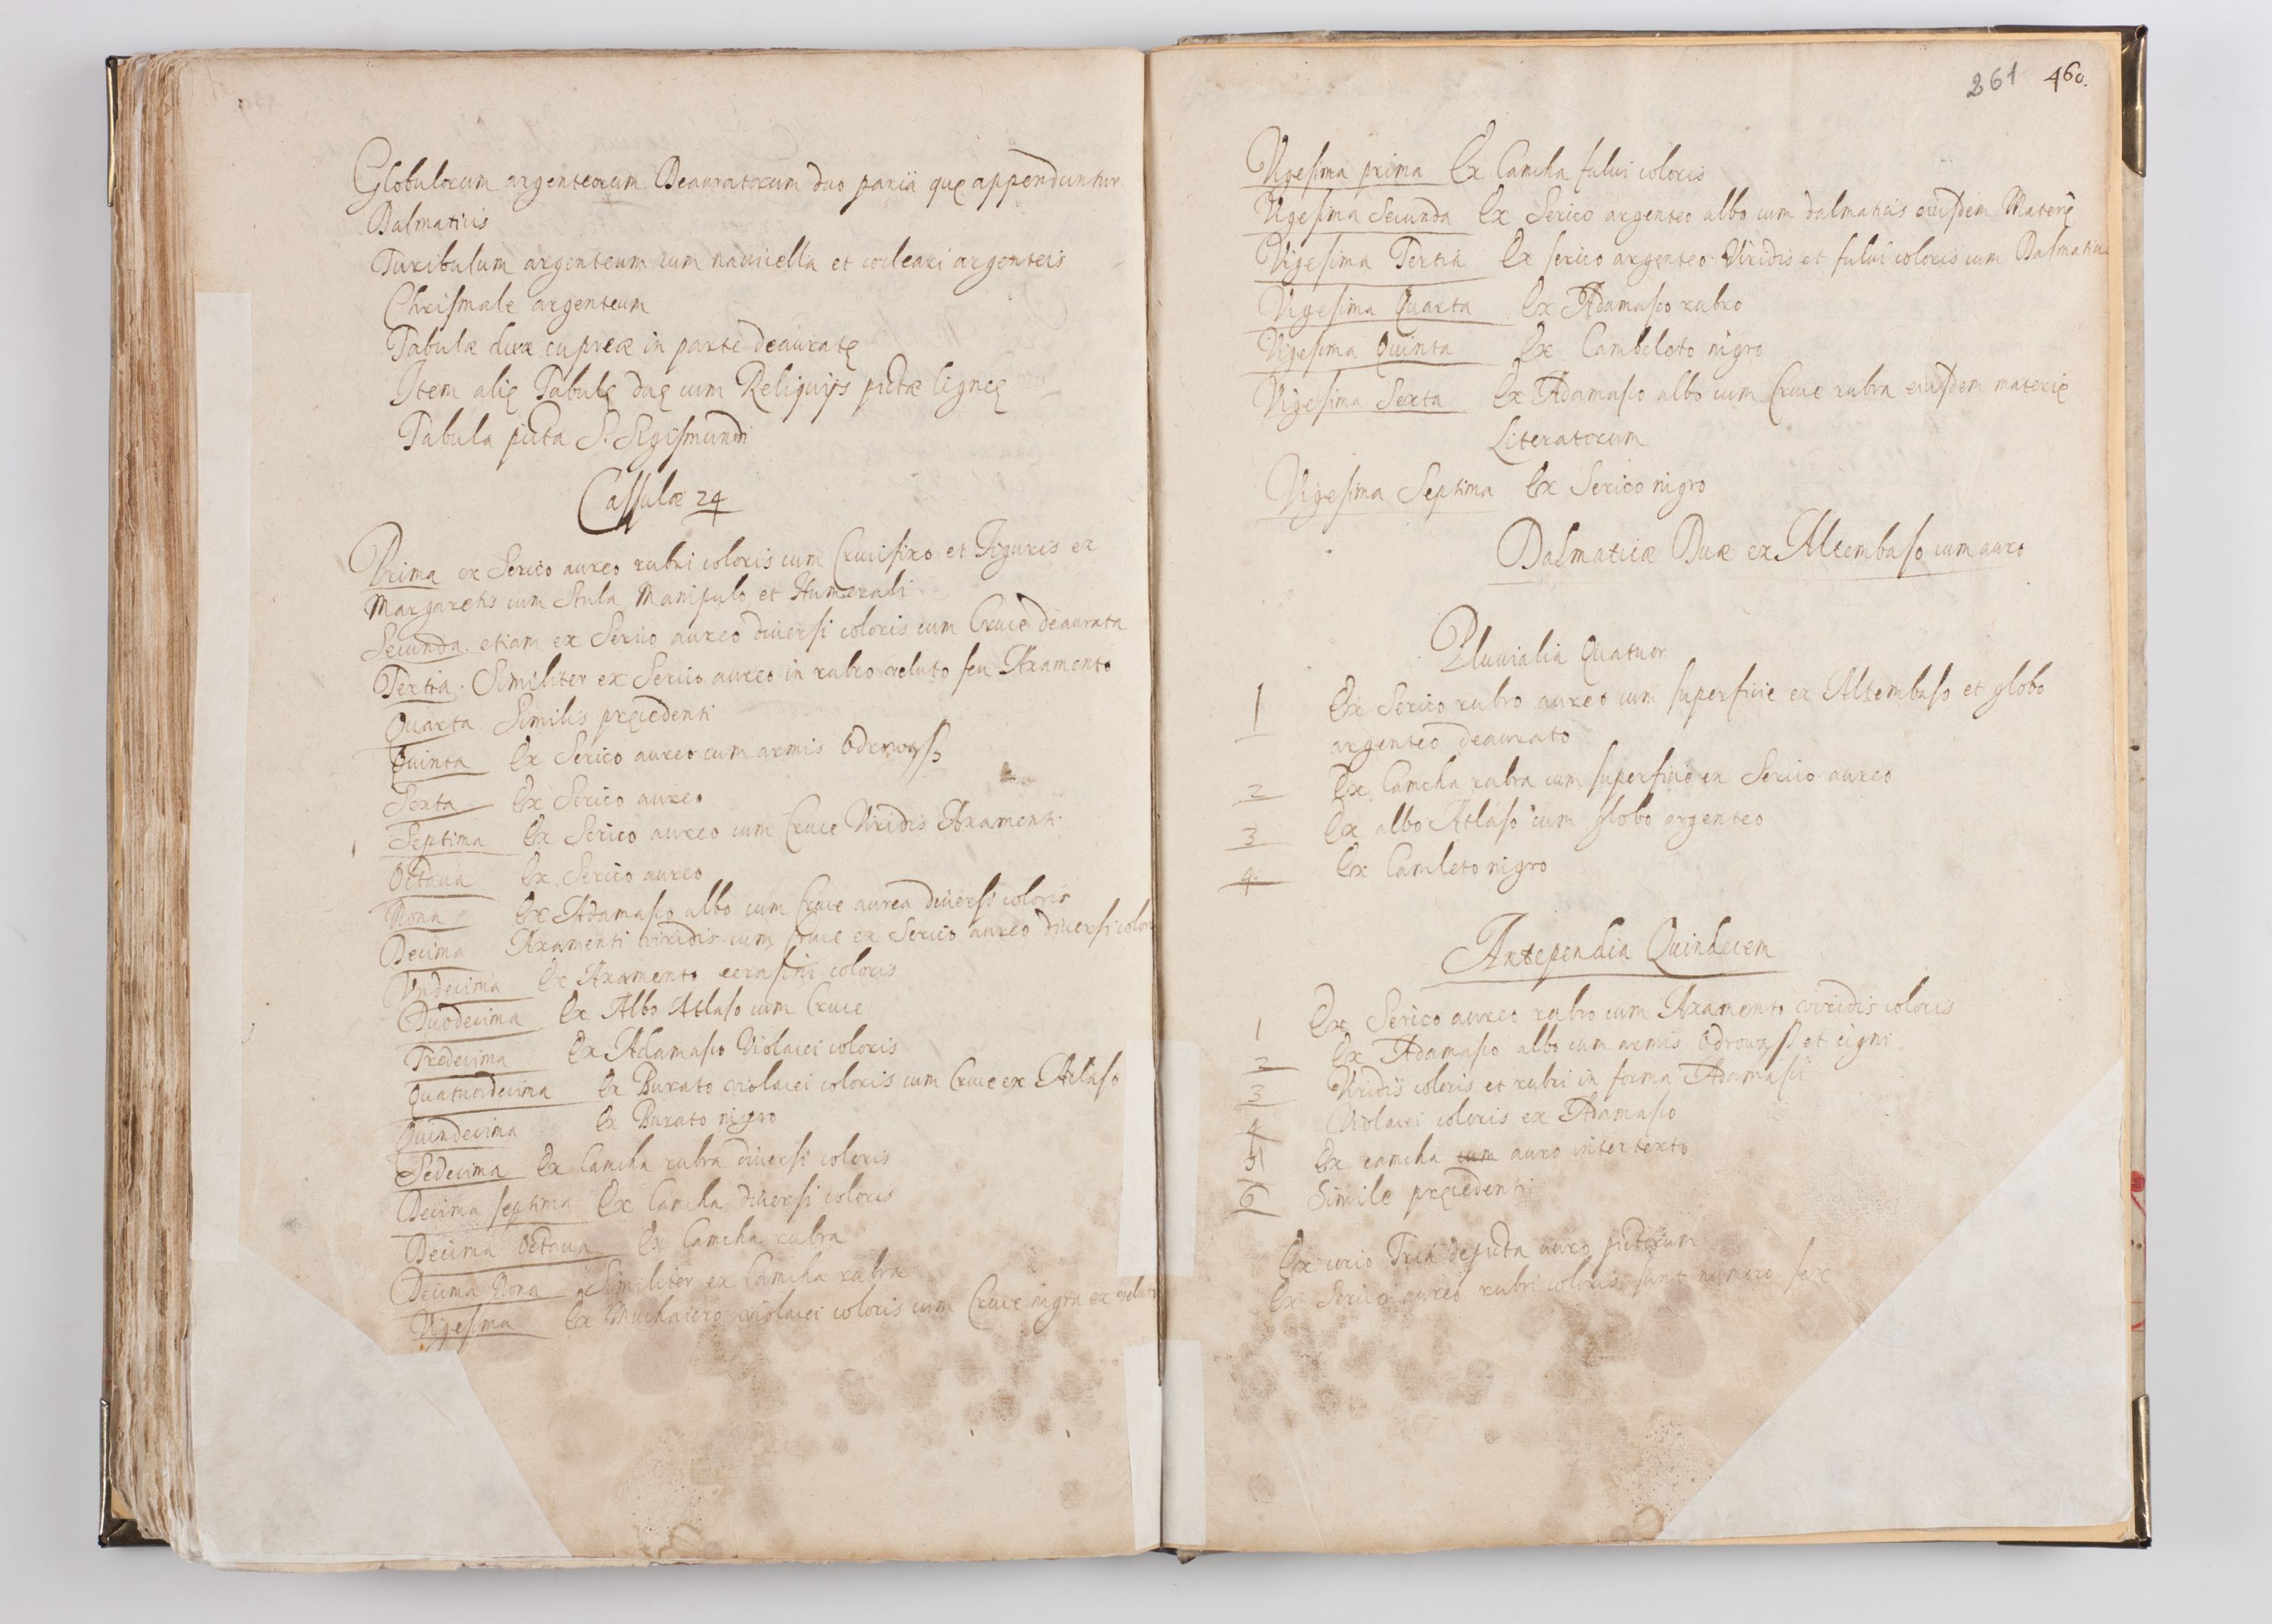 Globulorum argenteorum Deauratorum duo paria quę appenduntur
Dalmaticis
Turibulum argenteum cum navicella et cocleari argenteis
Chrismale argenteum
Tabulæ duæ cupreæ in parte deauratę
Item alię Tabulę duę cum Reliquijs pictæ ligneę
Tabula picta S. Sigismundi
Cassulæ 24
Prima ex Serico aureo rubri coloris cum Crucifixo et Figuris ex
Margaretis cum Stula Manipulo et Humerali
Secunda etiam ex Serico aureo diuersi coloris cum Cruce deaurata
Tertia. Similiter ex Serico aureo in rubro veluto seu Axamento
Quarta Similis pręcedenti
Quinta Ex Serico aureo cum armis Odrowąsz
Sexta Ex Serico aureo
Septima Ex Serico aureo cum Cruce Viridis Axamenti
Octaua Ex Serico aureo
Nona Ex Adamasco albo cum Cruce aurea diuersi coloris
Decima Axamenti viridis cum Cruce ex Serico aureo diuersi color
Vndecima Ex Axamento cerasini coloris
Duodecima Ex Albo Atlaso cum Cruce
Tredecima Ex Adamasco Violacei coloris
Quatuordecima Ex Burato violacei coloris cum Cruce ex Atlaso
Quindecima Ex Burato nigro
Sedecima Ex Camcha rubra diuersi coloris
Decima septima Ex Camcha diuersi coloris
Decima Octaua Ex Camcha rubra
Decima Nona Similiter ex Camcha rubra
Vigesima Ex Muchaiero violacei coloris cum Cruce nigra ex velut
261 460.
Vigesima prima Ex Camcha fului coloris
Vigesima Secunda Ex Serico argenteo albo cum dalmaticis eiusdem Materię
Vigesima Tertia Ex serico argenteo Viridis et fului coloris cum Dalmatic
Vigesima Quarta Ex Adamasco rubro
Vigesima Quinta Ex Cambeloto nigro
Vigesima Sexta Ex Adamasco albo cum Cruce rubra eiusdem materię
Literatorum
Vigesima Septima Ex Serico nigro
Dalmaticæ Duæ ex Altembaso cum auro
Pluuialia Quatuor
1 Ex Serico rubro aureo cum superficie ex Altembaso et globo
argenteo deaurato
2 Ex Camcha rubra cum superficie ex Serico aureo
3 Ex albo Atlaso cum globo argenteo
4. Ex Camleto nigro
Antependia Quindecem
1 Ex Serico aureo rubro cum Axamento viridis coloris
2 Ex Adamasco albo cum armis Odrowąsz et cigni
3 Viridis coloris et rubri in forma Adamasci
4 Violacei coloris ex Adamasco
5 Ex camcha cum auro intertexto
6 Simile pręcedenti
Ex corio Tria depicta auro pictorum
Ex Serico aureo rubri coloris sunt numero sex